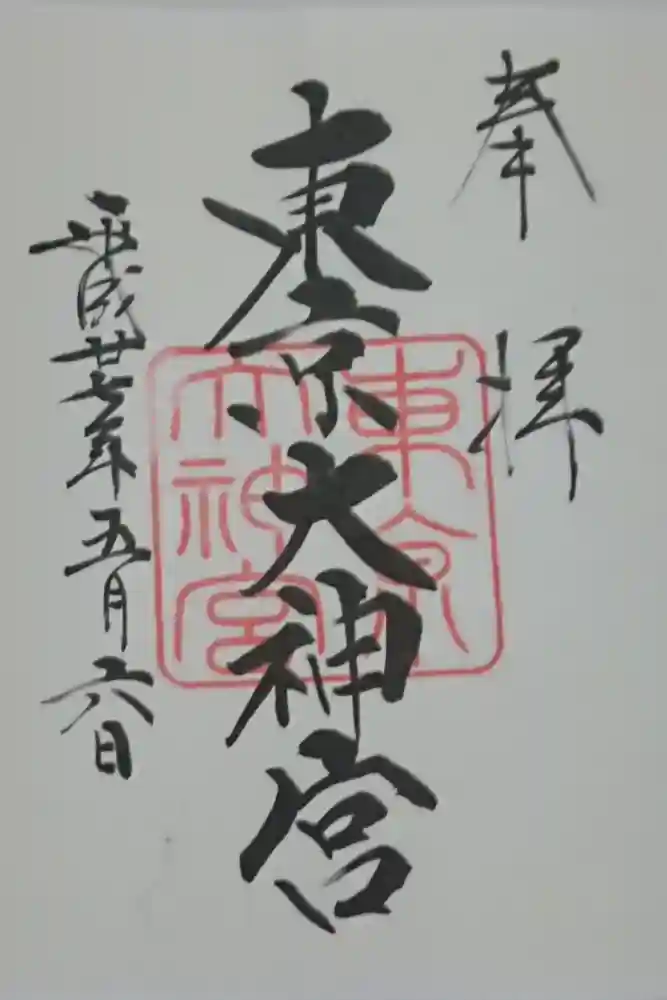 奉拝
東京大神宮
東京
大神宮
平成廿七年五月六日